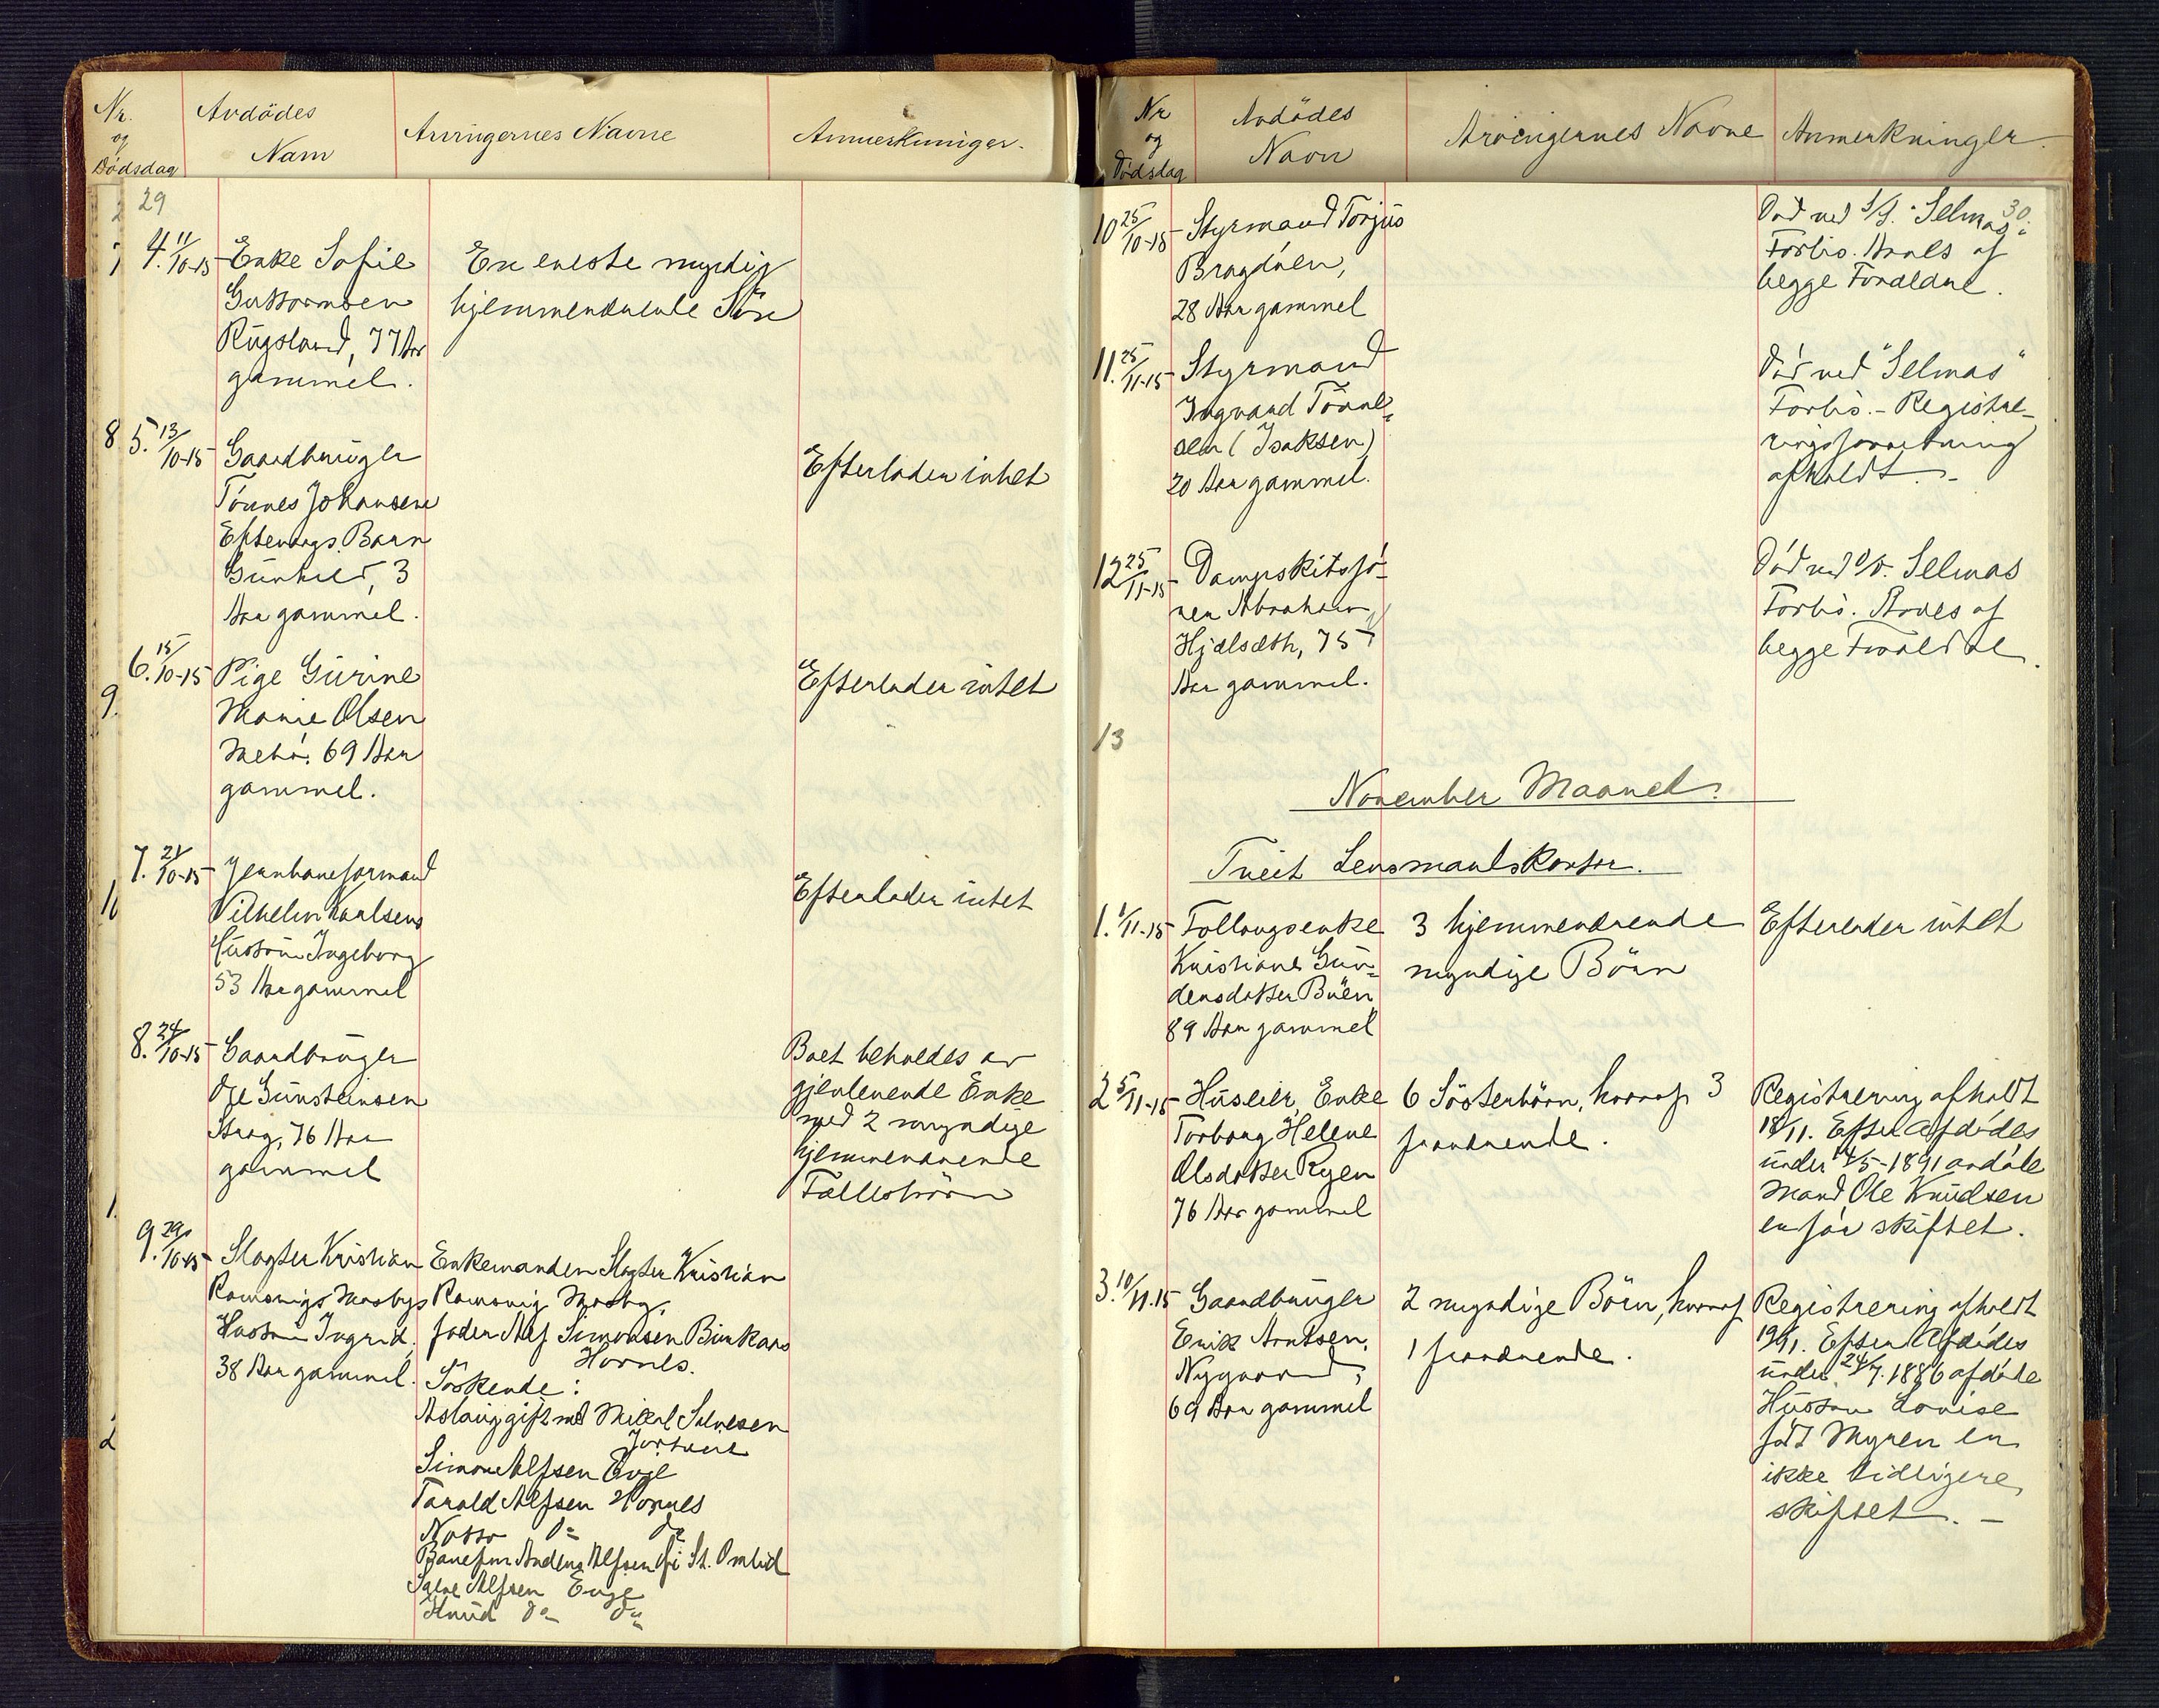 Nr. og Dödsdag
Avdödes Navn
Arvingernes Navne
Anmerkninger.
29
4. 11/10-15 Enke Sofie
Guttormsen
Rugsland, 77 Aar
gammel.
En eneste myndig
hjemmenærende Sön
5. 13/10-15 Gaardbruger
Tönnes Johansens
Efterlags Barn
Gunhild, 3
Aar gammel.
Efterlader intet
6. 15/10-15 Pige Gurine
Marie Olsen
Mebö. 69 Aar
gammel.
Efterlader intet
7. 21/10-15 Jernbaneformand
Vilhelm Karlsens
Hustru Ingeborg
53 Aar gammel
Efterlader intet
8. 24/10-15 Gaardbruger
Ole Gunsteinsen
Strag, 76 Aar
gammel
Boet beholdes av
gjenlevende Enke
med 2 myndige
hjemmenærende
Fællesbörn
9. 29/10-15 Slagter Kristian
Ramsvigs Mosbys
Hustru Ingrid,
38 Aar gammel.
Enkemanden Slagter Kristian
Ramsvig Mosby,
fader Alf Simonsen
Hornes.
Söskende:
Aslaug gift med Mikal Salvesen
Simon Alfsen Evje
Tarald Alfsen Hornes
do do
Anders Alfsen St.
Salve Alfsen Evje
Knud do do
Nr og Dödsdag
Avdödes Navn
Arvingernes Navne
Anmerkninger.
30.
10 25/10-15 Styrmand Torjus
Bragdöen,
28 Aar gammel
Död ved S/S. "Selmas"
Forlis. Arves af
begge Forældre.
11. 25/11-15 Styrmand
Ingvard Tönne-
sen (Isaksen)
20 Aar gammel.
Död ved "Selmas"
Forlis. - Registre-
ringsforretning
afholdt. -
12 25/11-15 Dampskibsfö-
rer Abraham
Hjelseth, 75
Aar gammel.
Död ved Selmas
Forlis. Arves af
begge Forældre.
13
November Maaned.
Tveit Lensmandskontor.
1. 1/11-15 Follaugsenke
Kristiane Gun-
densdatter Buen
89 Aar gammel
3 hjemmenærende
myndige Börn
Efterlader intet
2 5/11-15 Huseier, Enke
Torborg Helene
Olsdatter Ryen
76 Aar gammel
6 Sösterbörn, hvoraf 3
fraværende.
Registrering afholdt
18/11. Efter Afdödes
under 14/5-1891 avdöde
Mand Ole Knudsen
er för skiftet.
3. 10/11.15 Gaardbruger
Erik Arntsen,
Nygaard,
69 Aar gammel
2 myndige Börn, hvoraf
1 fraværende.
Registrering afholdt
19/11. Efter Afdödes
under 24/7.1886 afdöde
Hustru Lovise
född Myren er
ikke tidligere
skiftet. -